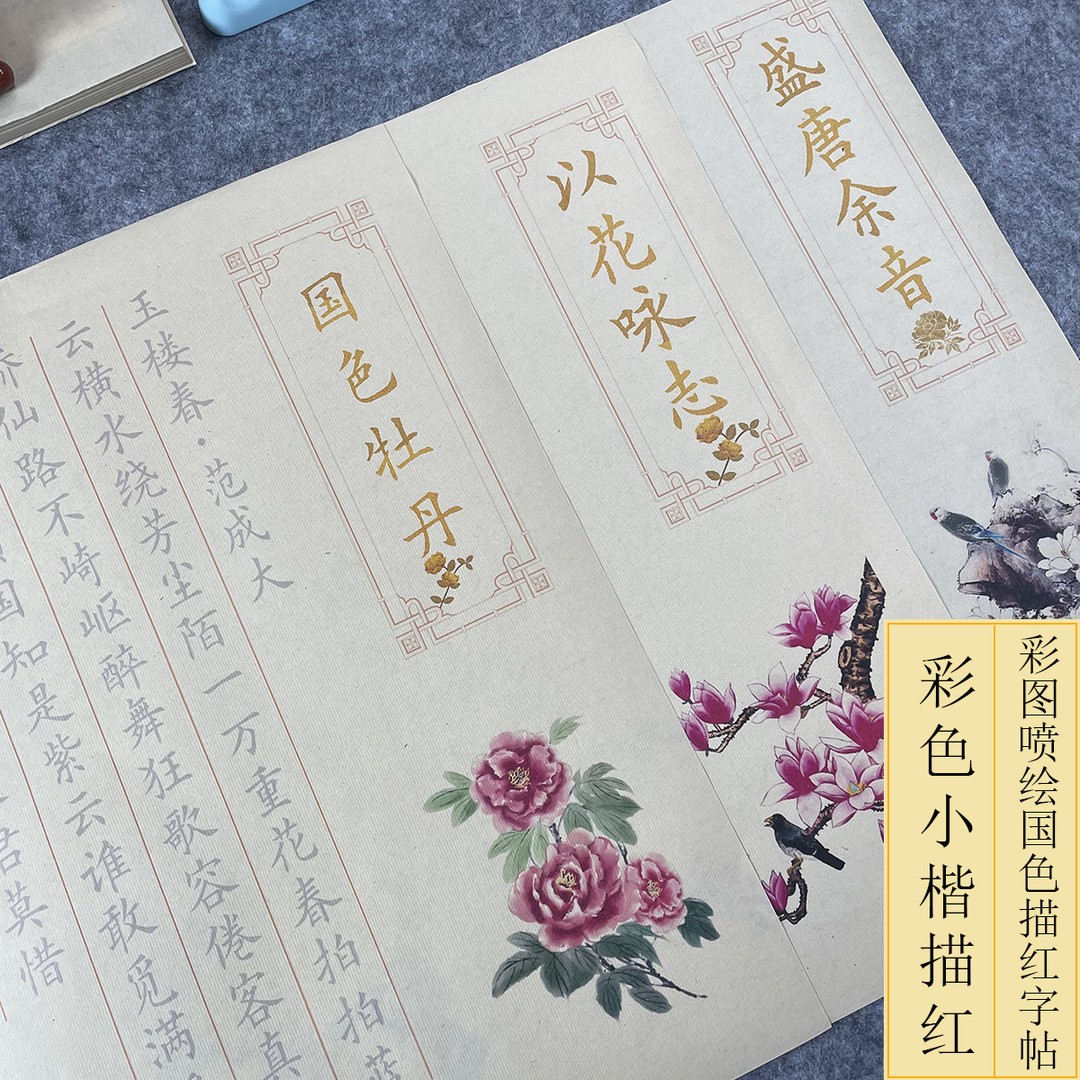 盛唐余音
以花咏志
国色牡丹
玉楼春·范成大
云横水绕芳尘陌一万重花春拍拍蓝
桥仙路不崎岖醉舞狂歌容倦客真
国知是紫云谁敢觅满
君莫惜
彩图喷绘国色描红字帖
彩色小楷描红